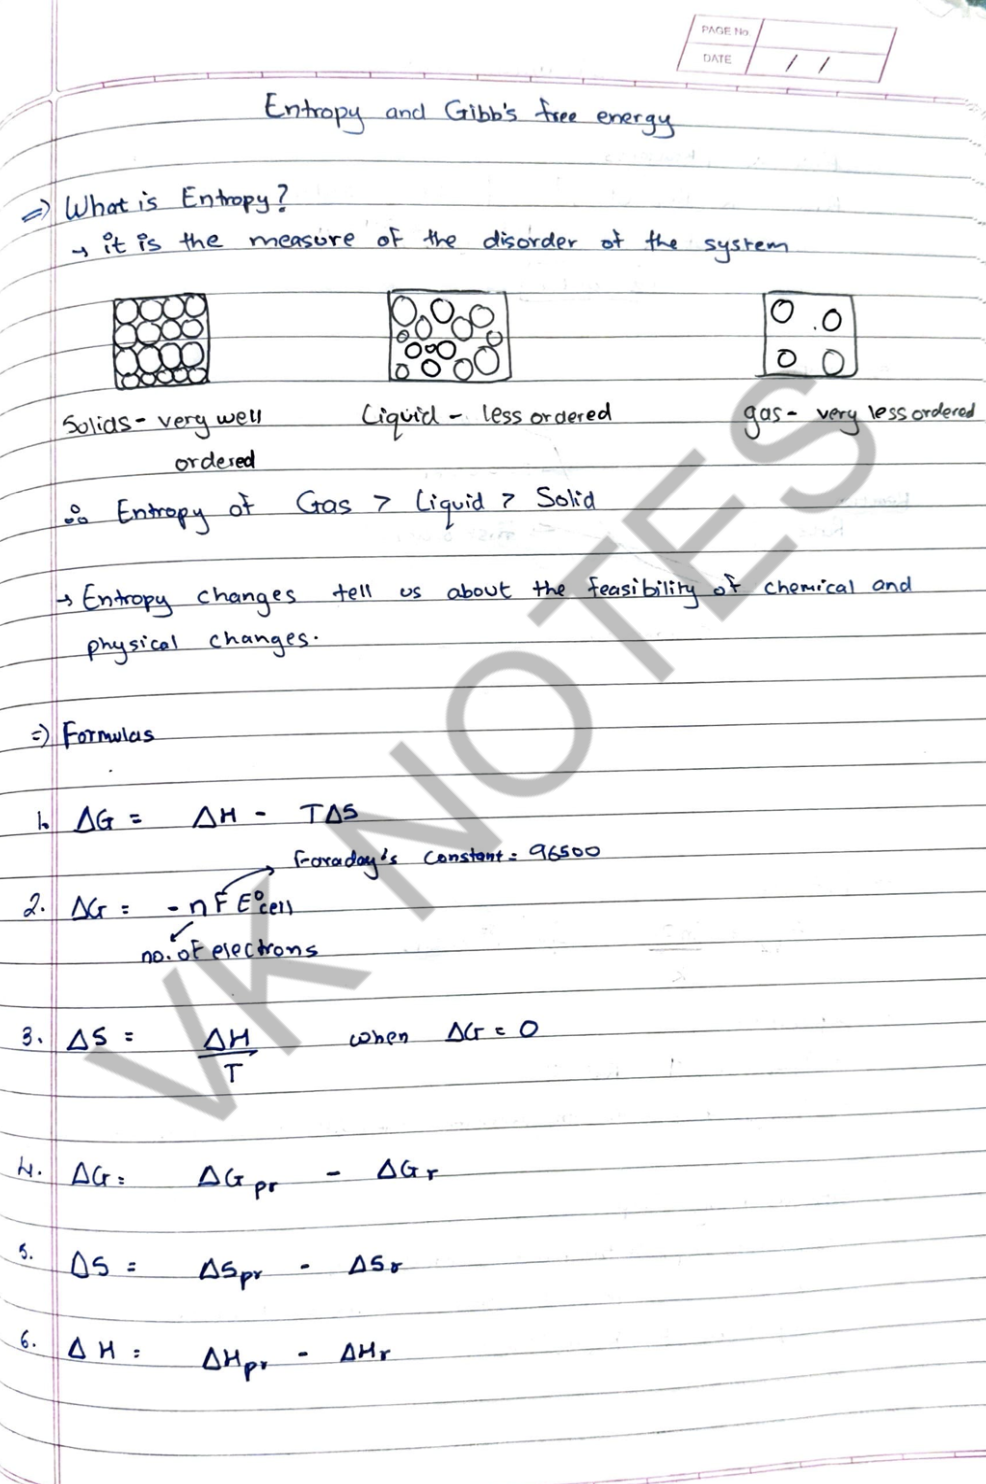 PAGE No
DATE / /
Entropy and Gibb's free energy
⇒ What is Entropy?
→ it is the measure of the disorder of the system
Solids - very well ordered
Liquid - less ordered
gas - very less ordered
∴ Entropy of Gas > Liquid > Solid
→ Entropy changes tell us about the feasibility of chemical and
physical changes.
⇒ Formulas
1. ΔG = ΔH - TΔS
Faraday's constant = 96500
2. ΔG = - n F E°cell
no. of electrons
3. ΔS = ΔH/T when ΔG = 0
4. ΔG = ΔG pr - ΔG r
5. ΔS = ΔS pr - ΔS r
6. ΔH = ΔH pr - ΔH r
VK NOTES